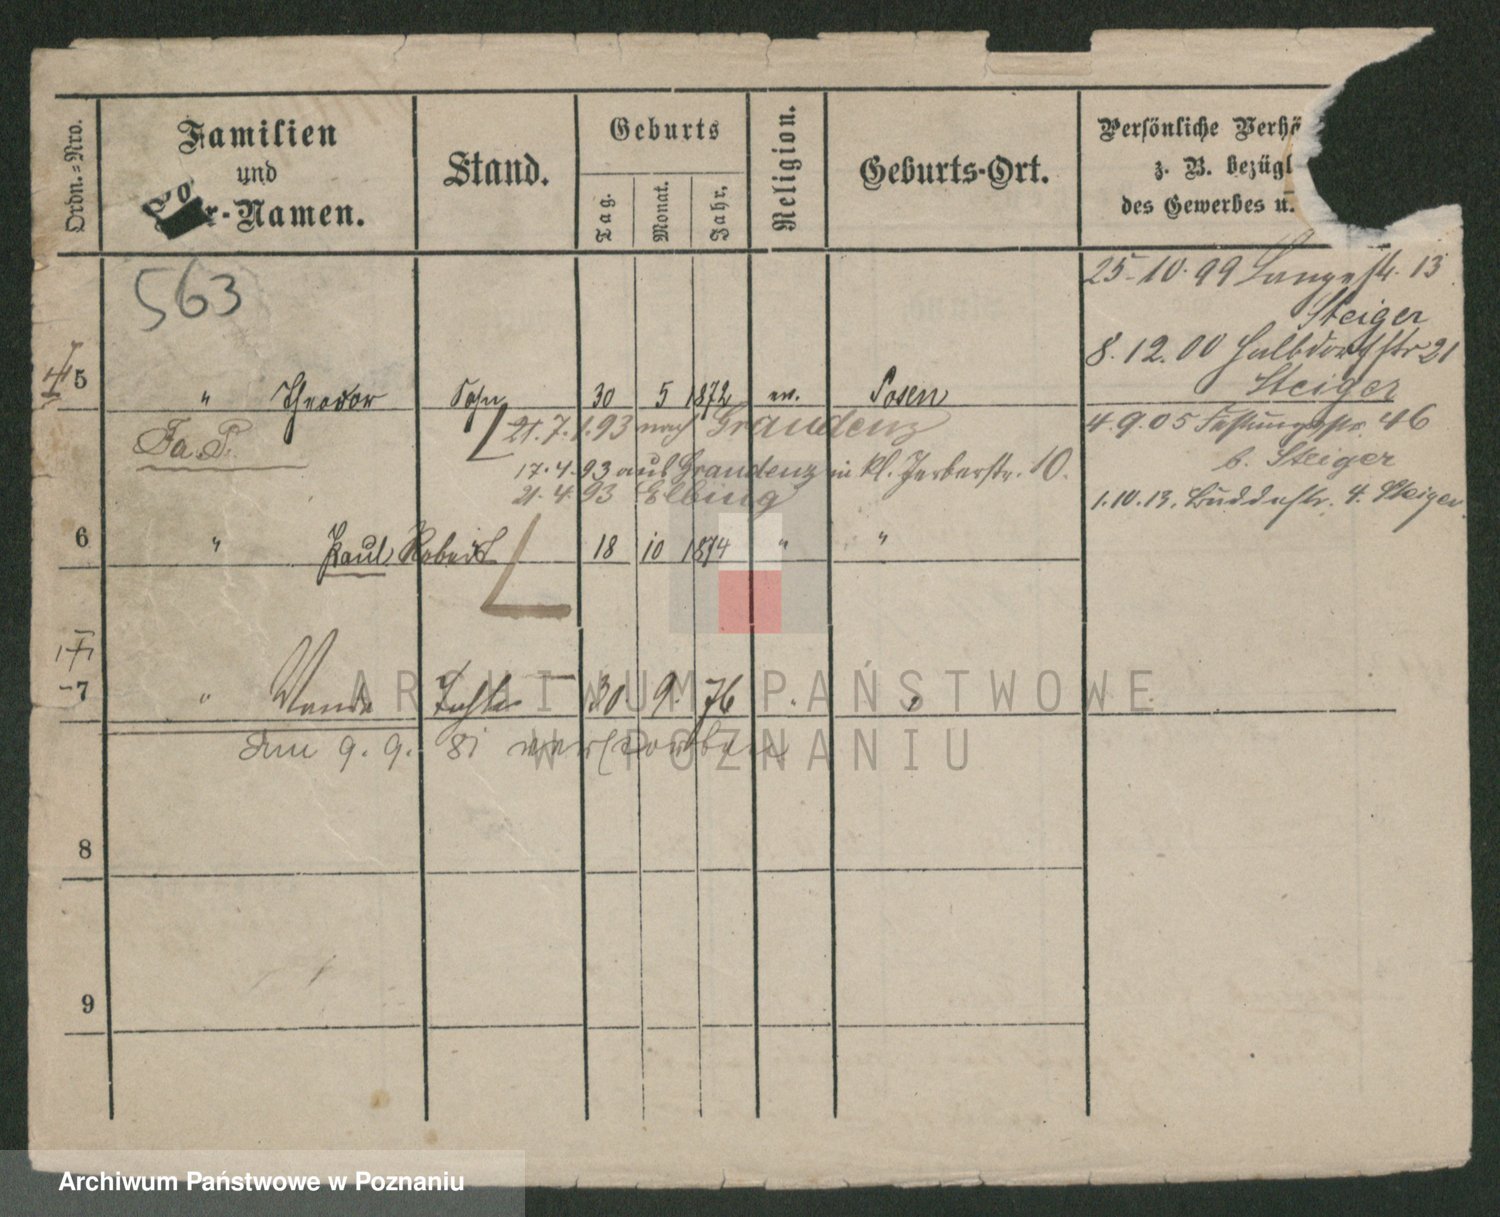 Ordn.=Nro.
Familien
und
Vor-Namen.
Stand.
Geburts
Tag.
Monat.
Jahr.
Religion.
Geburts-Ort.
Persönliche Verhä
z. B. bezügl
des Gewerbes u.
563
25-10.99 Langestr. 13
Steiger
8.12.00 Halbdorfstr 21
Steiger
5 " Theodor Sohn 30 5 1872 ev. Posen
Fa. P.
21.7.1.93 nach Graudenz
4.9.05 Festungsstr. 46
b. Steiger
17.4.93 aus Graudenz in kl. Gerberstr. 10.
21.4.93 Elbing
1.10.13. Buddestr. 4. Steiger.
6 " Paul Robert 18 10 1874 " "
7 " Wanda Tochter 30 9. 76 " "
Am 9.9. 81 verstorben
8
9
ARCHIWUM PAŃSTWOWE
W POZNANIU
Archiwum Państwowe w Poznaniu